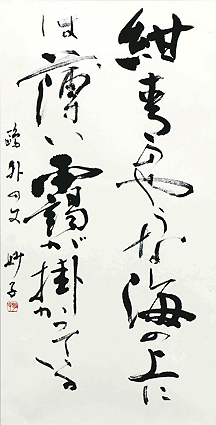 紺青のやうな海の上に
は薄い靄が掛かつてゐる
鷗外の文 妙子